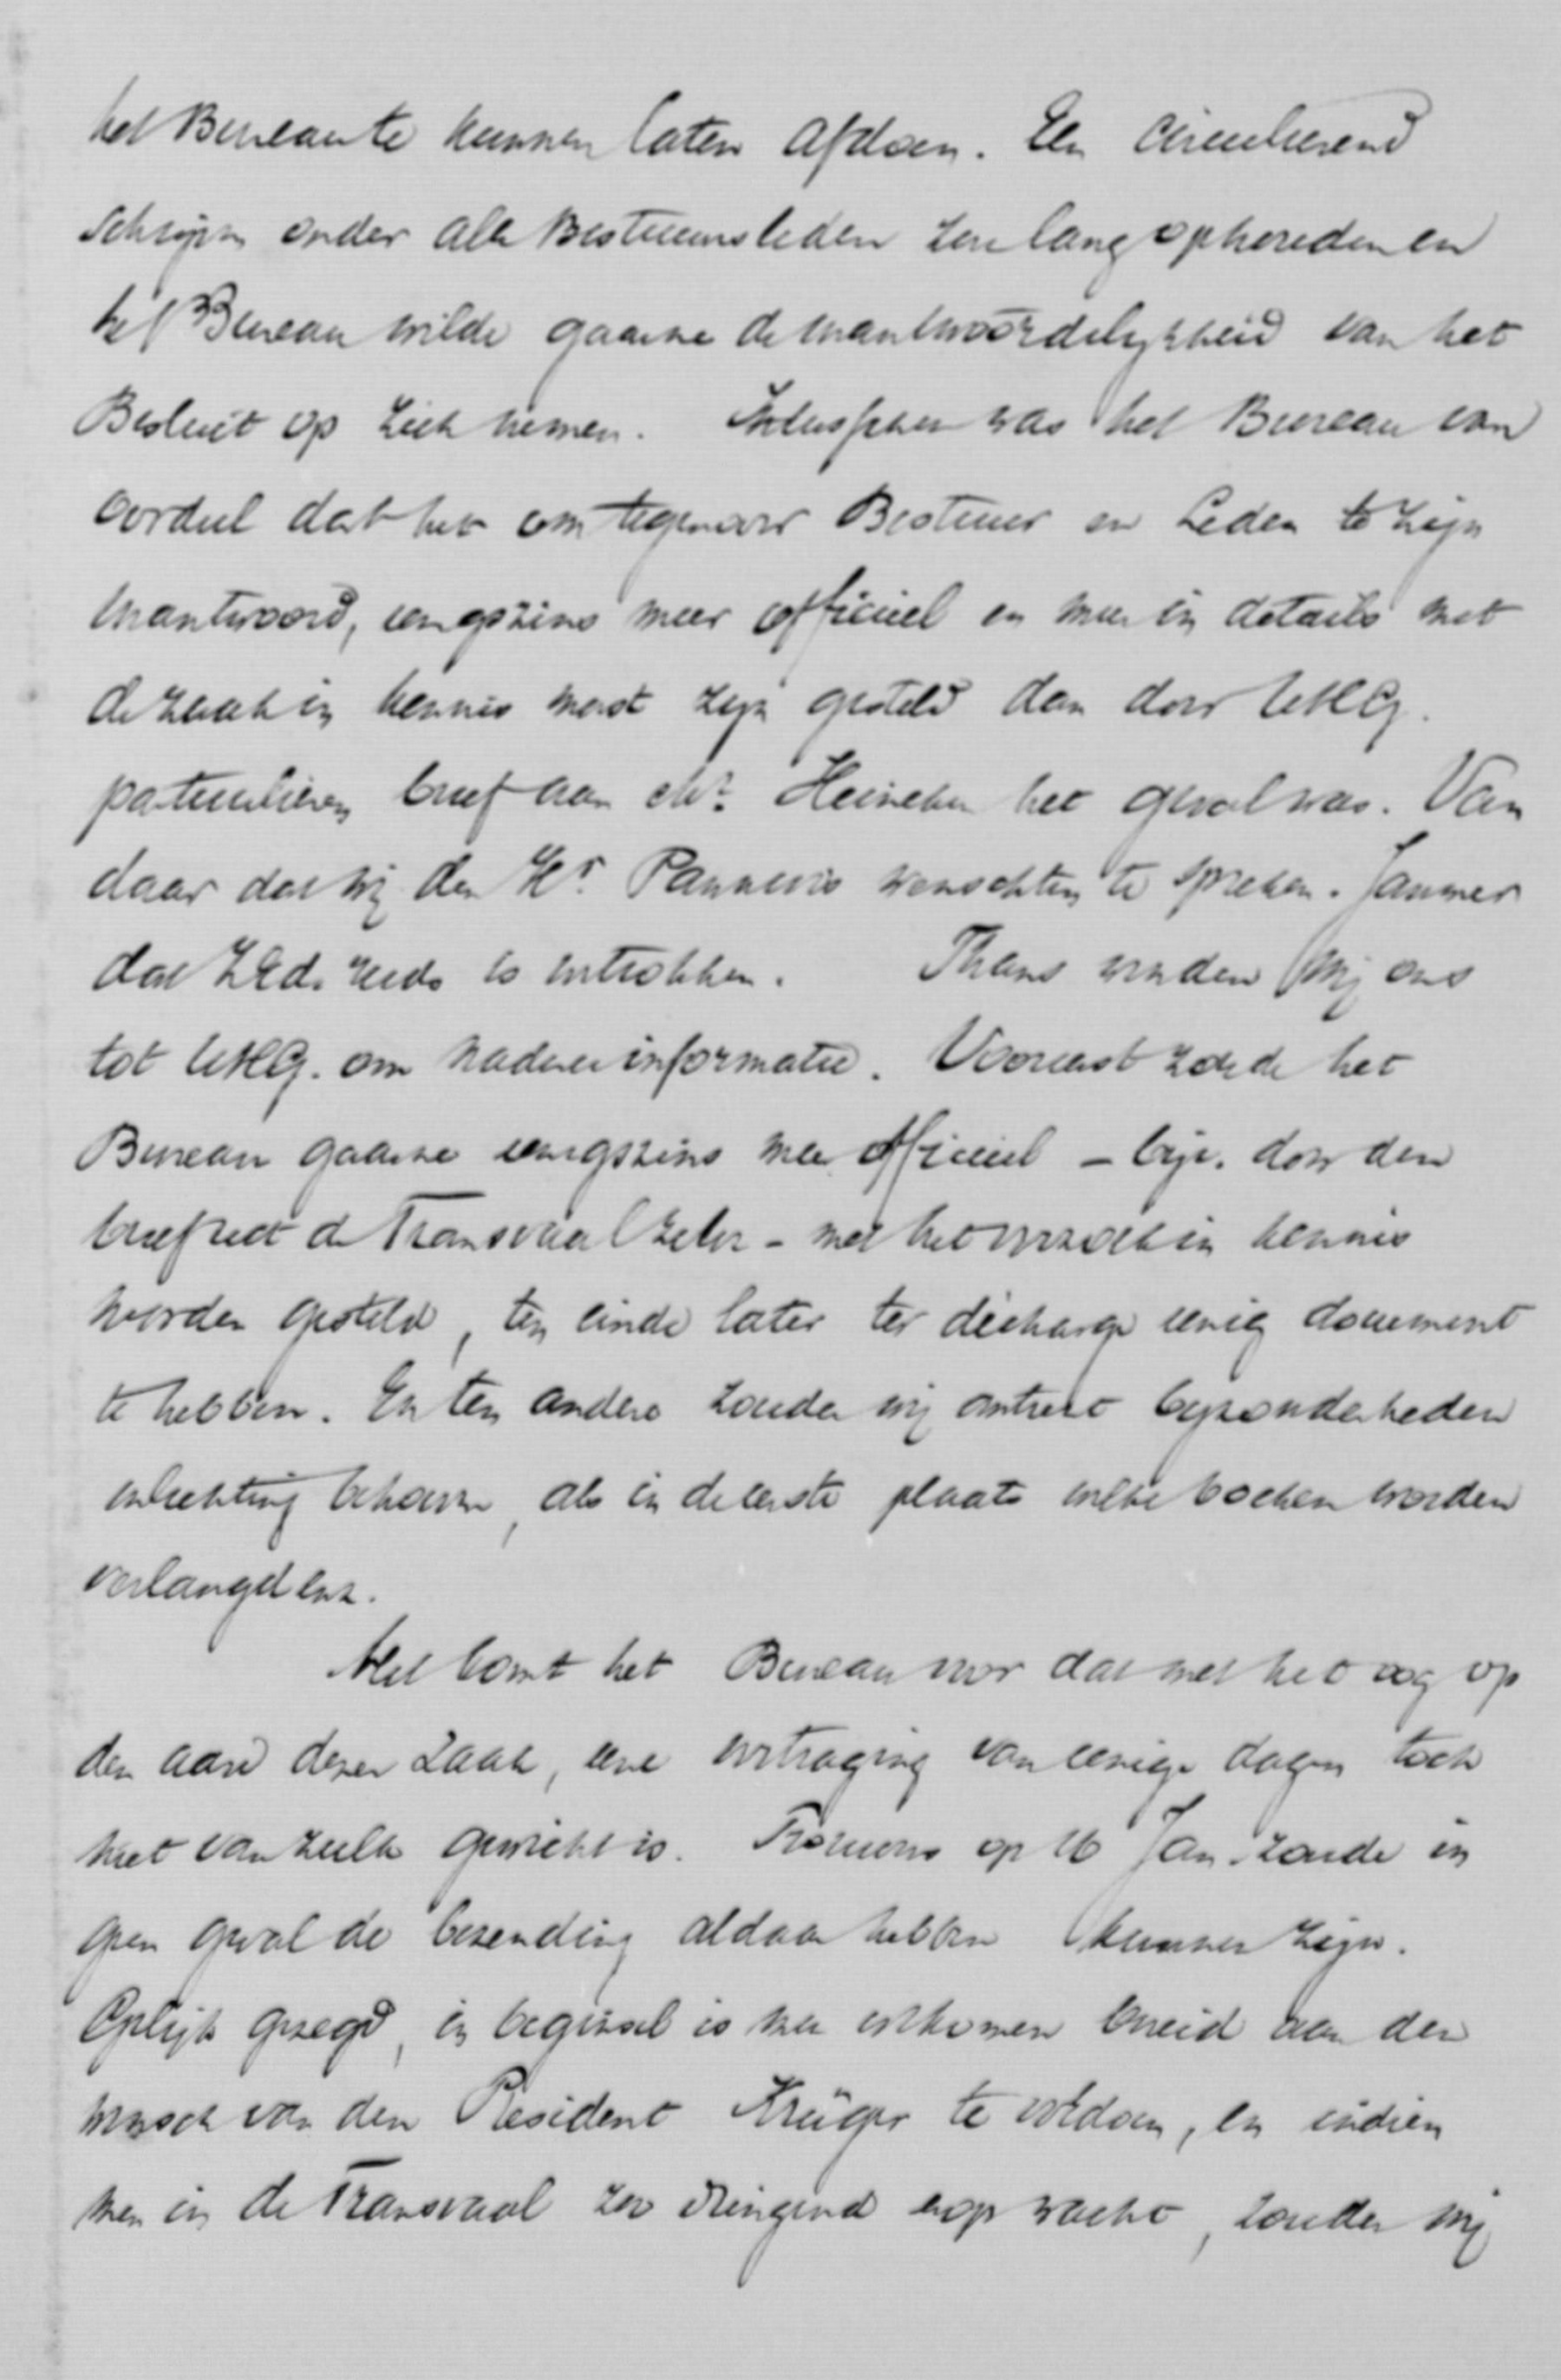 het Bureau te kunnen laten afdoen. Een circuleerend
schrijven onder alle Bestuursleden zou lang ophouden en
het Bureau wilde gaarne de verantwoordelijkheid van het
Besluit op zich nemen. Intusschen was het Bureau van
oordeel dat het om tegenover Bestuur en Leden te zijn
verantwoord, eenigszins meer officieel en meer in details met
de zaak in kennis moest zijn gesteld dan door UHEG.
particulieren brief aan Mr. Heineken het geval was. Van
daar dat wij den Hr. Pannevis wenschten te spreken. Jammer
dat ZEd. reeds is vertrokken. Thans wenden wij ons
tot UHEG. om nadere informatie. Vooreerst zoude het
Bureau gaarne eenigszins meer officieel – bijv. door den
brief uit de Transvaal zelve – met het verzoek in kennis
worden gesteld, ten einde later ter decharge eenig document
te hebben. En ten andere zouden wij omtrent bijzonderheden
inlichting behoeven, als in de eerste plaats welke boeken worden
verlangd enz.
Het komt het Bureau voor dat met het oog op
den aard dezer zaak, eene vertraging van eenige dagen toch
niet van zulk gewicht is. Trouwens op 16 Jan. zoude in
geen geval de bezending aldaar hebben kunnen zijn.
Eerlijk gezegd, in beginsel is men volkomen bereid aan den
wensch van den President Krüger te voldoen, en indien
men in de Transvaal zoo dringend erop wacht, zouden wij